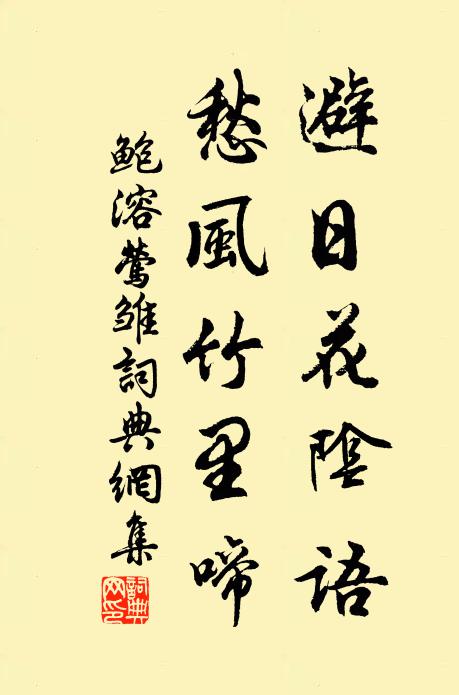 避日花陰語
愁風竹里啼
鮑溶鶯雛詞典網集
詞典网印